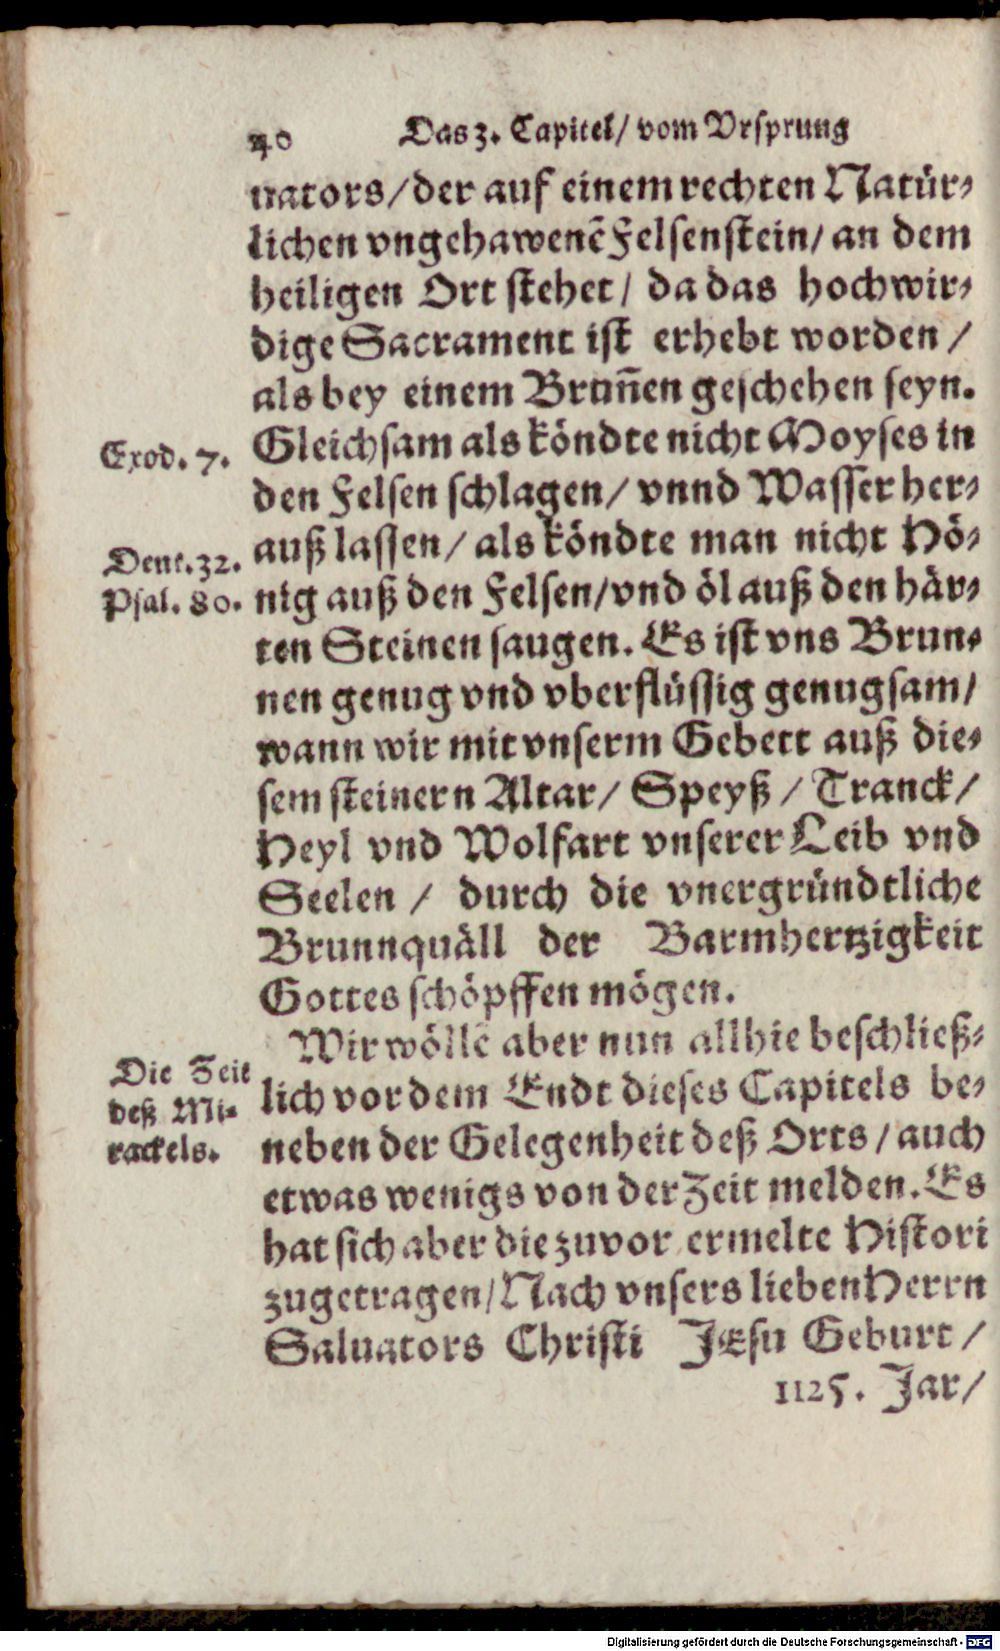 40 Das 3. Capitel/ vom Vrsprung
uators/ der auf einem rechten Natür-
lichen vngehawenẽ Felsenstein/ an dem
heiligen Ort stehet/ da das hochwir-
dige Sacrament ist erhebt worden/
als bey einem Brun̄en geschehen seyn.
Exod. 7. Gleichsam als köndte nicht Moyses in
den Felsen schlagen/ vnnd Wasser her-
Deut. 32. auß lassen/ als köndte man nicht Hö-
Psal. 80. nig auß den Felsen/ vnd öl auß den här-
ten Steinen saugen. Es ist vns Brun-
nen genug vnd vberflüssig genugsam/
wann wir mit vnserm Gebett auß die-
sem steinern Altar/ Speyß/ Tranck/
Heyl vnd Wolfart vnserer Leib vnd
Seelen/ durch die vnergründtliche
Brunnquäll der Barmhertzigkeit
Gottes schöpffen mögen.
Wir wöllẽ aber nun allhie beschließ-
Die Zeit lich vor dem Endt dieses Capitels be-
deß Mi- neben der Gelegenheit deß Orts/ auch
rackels. etwas wenigs von der Zeit melden. Es
hat sich aber die zuvor ermelte Histori
zugetragen/ Nach vnsers lieben Herrn
Saluators Christi JEsu Geburt/
1125. Jar/
Digitalisierung gefördert durch die Deutsche Forschungsgemeinschaft - DFG